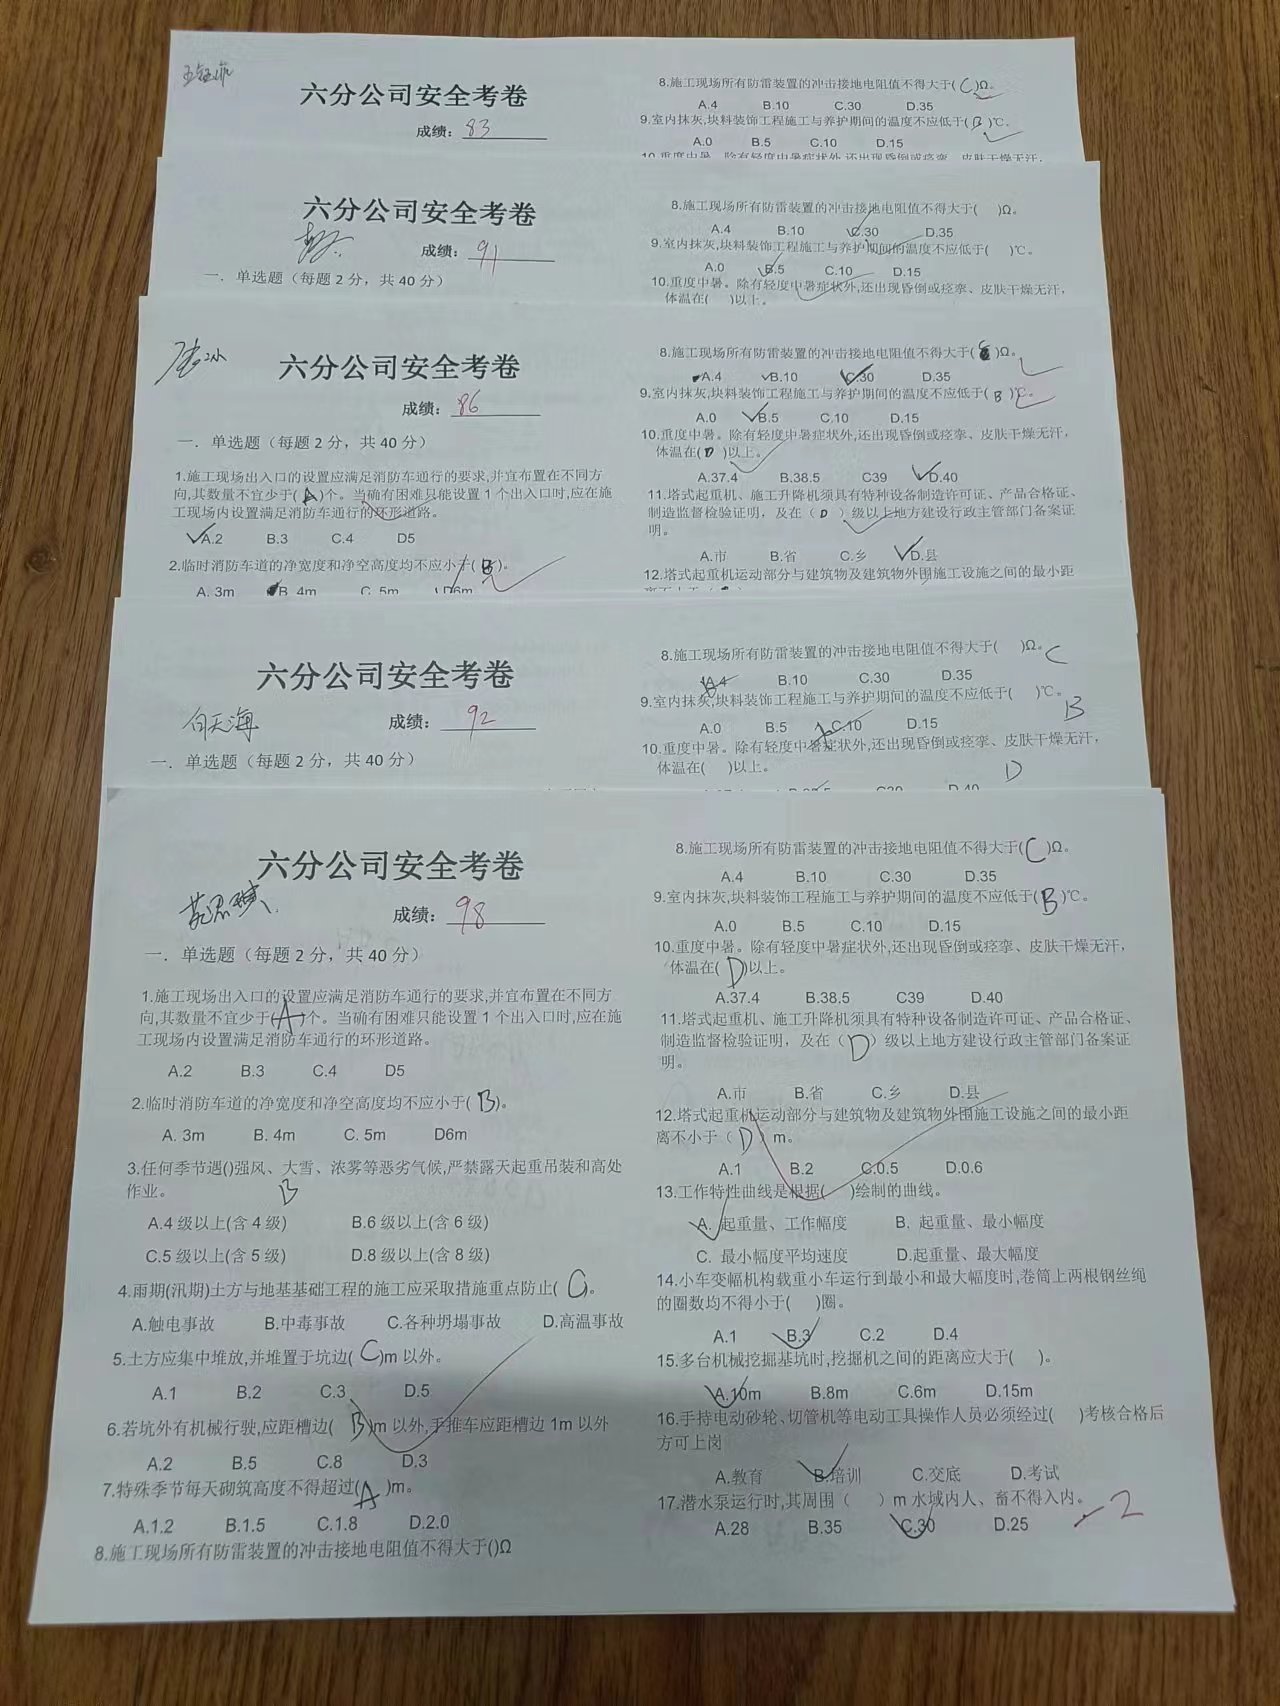 六分公司安全考卷
成绩: 83
8.施工现场所有防雷装置的冲击接地电阻值不得大于( C )Ω。
A.4 B.10 C.30 D.35
9.室内抹灰,块料装饰工程施工与养护期间的温度不应低于( B )℃。
A.0 B.5 C.10 D.15
10.重度中暑。除有轻度中暑症状外,还出现昏倒或痉挛、皮肤干燥无汗,
六分公司安全考卷
成绩: 91
一. 单选题（每题 2 分，共 40 分）
8.施工现场所有防雷装置的冲击接地电阻值不得大于( )Ω。
A.4 B.10 C.30 D.35
9.室内抹灰,块料装饰工程施工与养护期间的温度不应低于( )℃。
A.0 B.5 C.10 D.15
10.重度中暑。除有轻度中暑症状外,还出现昏倒或痉挛、皮肤干燥无汗,
体温在( )以上。
六分公司安全考卷
成绩: 86
一. 单选题（每题 2 分，共 40 分）
1.施工现场出入口的设置应满足消防车通行的要求,并宜布置在不同方
向,其数量不宜少于( A )个。当确有困难只能设置 1 个出入口时,应在施
工现场内设置满足消防车通行的环形道路。
A.2 B.3 C.4 D5
2.临时消防车道的净宽度和净空高度均不应小于( B )。
A. 3m B. 4m C. 5m D6m
8.施工现场所有防雷装置的冲击接地电阻值不得大于( )Ω。
A.4 B.10 C.30 D.35
9.室内抹灰,块料装饰工程施工与养护期间的温度不应低于( B )℃。
A.0 B.5 C.10 D.15
10.重度中暑。除有轻度中暑症状外,还出现昏倒或痉挛、皮肤干燥无汗,
体温在( D )以上。
A.37.4 B.38.5 C39 D.40
11.塔式起重机、施工升降机须具有特种设备制造许可证、产品合格证、
制造监督检验证明，及在（ D ）级以上地方建设行政主管部门备案证
明。
A.市 B.省 C.乡 D.县
12.塔式起重机运动部分与建筑物及建筑物外围施工设施之间的最小距
六分公司安全考卷
向天海
成绩: 92
一. 单选题（每题 2 分，共 40 分）
8.施工现场所有防雷装置的冲击接地电阻值不得大于( )Ω。 C
A.4 B.10 C.30 D.35
9.室内抹灰,块料装饰工程施工与养护期间的温度不应低于( )℃。 B
A.0 B.5 C.10 D.15
10.重度中暑。除有轻度中暑症状外,还出现昏倒或痉挛、皮肤干燥无汗,
体温在( )以上。 D
六分公司安全考卷
成绩: 98
一. 单选题（每题 2 分，共 40 分）
1.施工现场出入口的设置应满足消防车通行的要求,并宜布置在不同方
向,其数量不宜少于( A )个。当确有困难只能设置 1 个出入口时,应在施
工现场内设置满足消防车通行的环形道路。
A.2 B.3 C.4 D5
2.临时消防车道的净宽度和净空高度均不应小于( B )。
A. 3m B. 4m C. 5m D6m
3.任何季节遇()强风、大雪、浓雾等恶劣气候,严禁露天起重吊装和高处
作业。 B
A.4 级以上(含 4 级) B.6 级以上(含 6 级)
C.5 级以上(含 5 级) D.8 级以上(含 8 级)
4.雨期(汛期)土方与地基基础工程的施工应采取措施重点防止( C )。
A.触电事故 B.中毒事故 C.各种坍塌事故 D.高温事故
5.土方应集中堆放,并堆置于坑边( C )m 以外。
A.1 B.2 C.3 D.5
6.若坑外有机械行驶,应距槽边( B )m 以外,手推车应距槽边 1m 以外
A.2 B.5 C.8 D.3
7.特殊季节每天砌筑高度不得超过( A )m。
A.1.2 B.1.5 C.1.8 D.2.0
8.施工现场所有防雷装置的冲击接地电阻值不得大于()Ω
8.施工现场所有防雷装置的冲击接地电阻值不得大于( C )Ω。
A.4 B.10 C.30 D.35
9.室内抹灰,块料装饰工程施工与养护期间的温度不应低于( B )℃。
A.0 B.5 C.10 D.15
10.重度中暑。除有轻度中暑症状外,还出现昏倒或痉挛、皮肤干燥无汗,
体温在( D )以上。
A.37.4 B.38.5 C39 D.40
11.塔式起重机、施工升降机须具有特种设备制造许可证、产品合格证、
制造监督检验证明，及在（ D ）级以上地方建设行政主管部门备案证
明。
A.市 B.省 C.乡 D.县
12.塔式起重机运动部分与建筑物及建筑物外围施工设施之间的最小距
离不小于（ D ）m。
A.1 B.2 C.0.5 D.0.6
13.工作特性曲线是根据( )绘制的曲线。
A. 起重量、工作幅度 B. 起重量、最小幅度
C. 最小幅度平均速度 D.起重量、最大幅度
14.小车变幅机构载重小车运行到最小和最大幅度时,卷筒上两根钢丝绳
的圈数均不得小于( )圈。
A.1 B.3 C.2 D.4
15.多台机械挖掘基坑时,挖掘机之间的距离应大于( )。
A.10m B.8m C.6m D.15m
16.手持电动砂轮、切管机等电动工具操作人员必须经过( )考核合格后
方可上岗
A.教育 B.培训 C.交底 D.考试
17.潜水泵运行时,其周围（ ）m 水域内人、畜不得入内。
A.28 B.35 C.30 D.25 -2